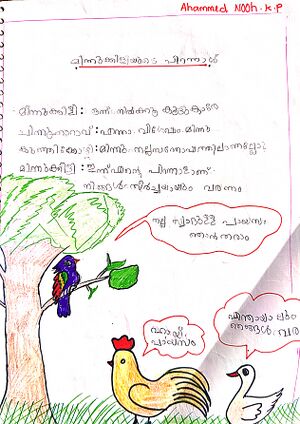 Ahammed NOOh.K.P
മിന്നുക്കിളിയുടെ പിറന്നാൾ
മിന്നുക്കിളി: ഒന്ന് നിൽക്കൂ കൂട്ടുകാരേ
ചിന്നുതാറാവ്: എന്താ വിശേഷം മിന്നൂ
കുത്തിക്കോഴി: മിന്നു നല്ലസന്തോഷത്തിലാണല്ലോ?
മിന്നുക്കിളി: ഇന്ന് എന്റെ പിറന്നാളാണ്
നിങ്ങൾ തീർച്ചയായും വരണം
നല്ല സ്വാദുള്ള പായസം
ഞാൻ തരാം
ഹായ്,
പായസം
എന്തായാലും
ഞങ്ങൾ വര